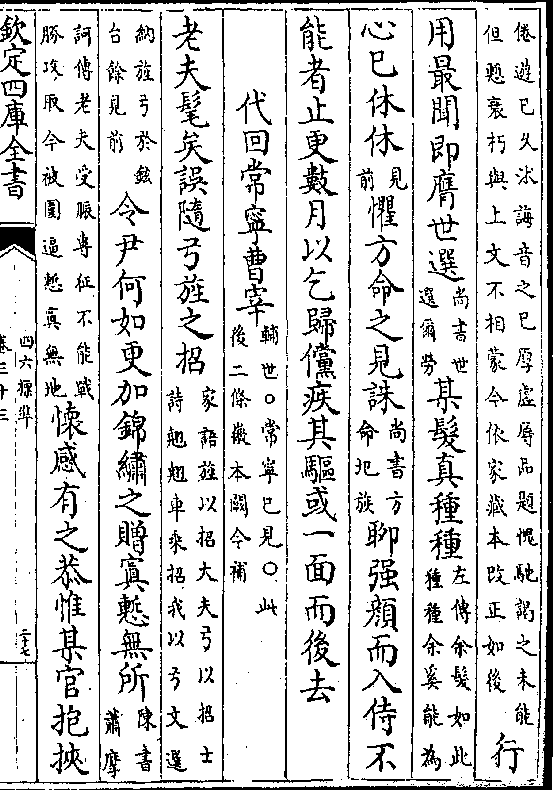 倦遊已久沐誨音之已厚虛辱品題愧馳謁之未能
但懇衰朽與上文不相蒙今依家藏本改正如後
行
用最聞即膺世選
尚書世
選爾勞
某髮真種種
左傳余髮如此
種種余奚能為
心已休休
見
前
懼方命之見誅
尚書方
命圯族
聊强顔而入侍不
能者止更數月以乞歸儻疾其驅或一面而後去
代回常寧曹宰
輔世○常寧已見○此
後二條徽本闕今補
老夫髦矣誤隨弓旌之招
家語旌以招大夫弓以招士
詩翹翹車乘招我以弓文選
納旌弓於鉉
台餘見前
令尹何如更加錦繡之贈寘慙無所
陳書
蕭摩
訶傳老夫受脤專征不能戰
勝攻取今被圍逼慙寘無地
懷感有之恭惟某官抱挾
欽定四庫全書
四六標準
卷三十三
三十七